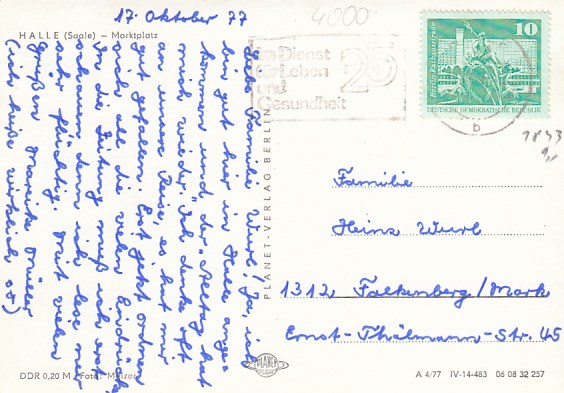 17. Oktober 77
HALLE (Saale) – Marktplatz
Liebe Familie Wurl! Ja, ich
bin gut hier in Halle ange-
kommen und der Alltag hat
mich wieder. Ich denke oft
an unsere Reise, es hat mir
gut gefallen. Erst jetzt ordnen
sich all die vielen Eindrücke.
In die Zeitung muß ich erst
schauen, denn ich lese nur
sehr flüchtig. Mit vielen
Grüßen Mareike Müller
(ich heiße wirklich so)
4000
Im Dienst
für Leben
und
Gesundheit
20
10
DEUTSCHE DEMOKRATISCHE REPUBLIK
b
1843
PLANET-VERLAG BERLIN
Familie
Heinz Wurl
1312 Falkenberg/Mark
Ernst-Thälmann-Str. 45
PLANET
DDR 0,20 M Foto: Melzer
A 4/77 IV-14-483 06 08 32 257